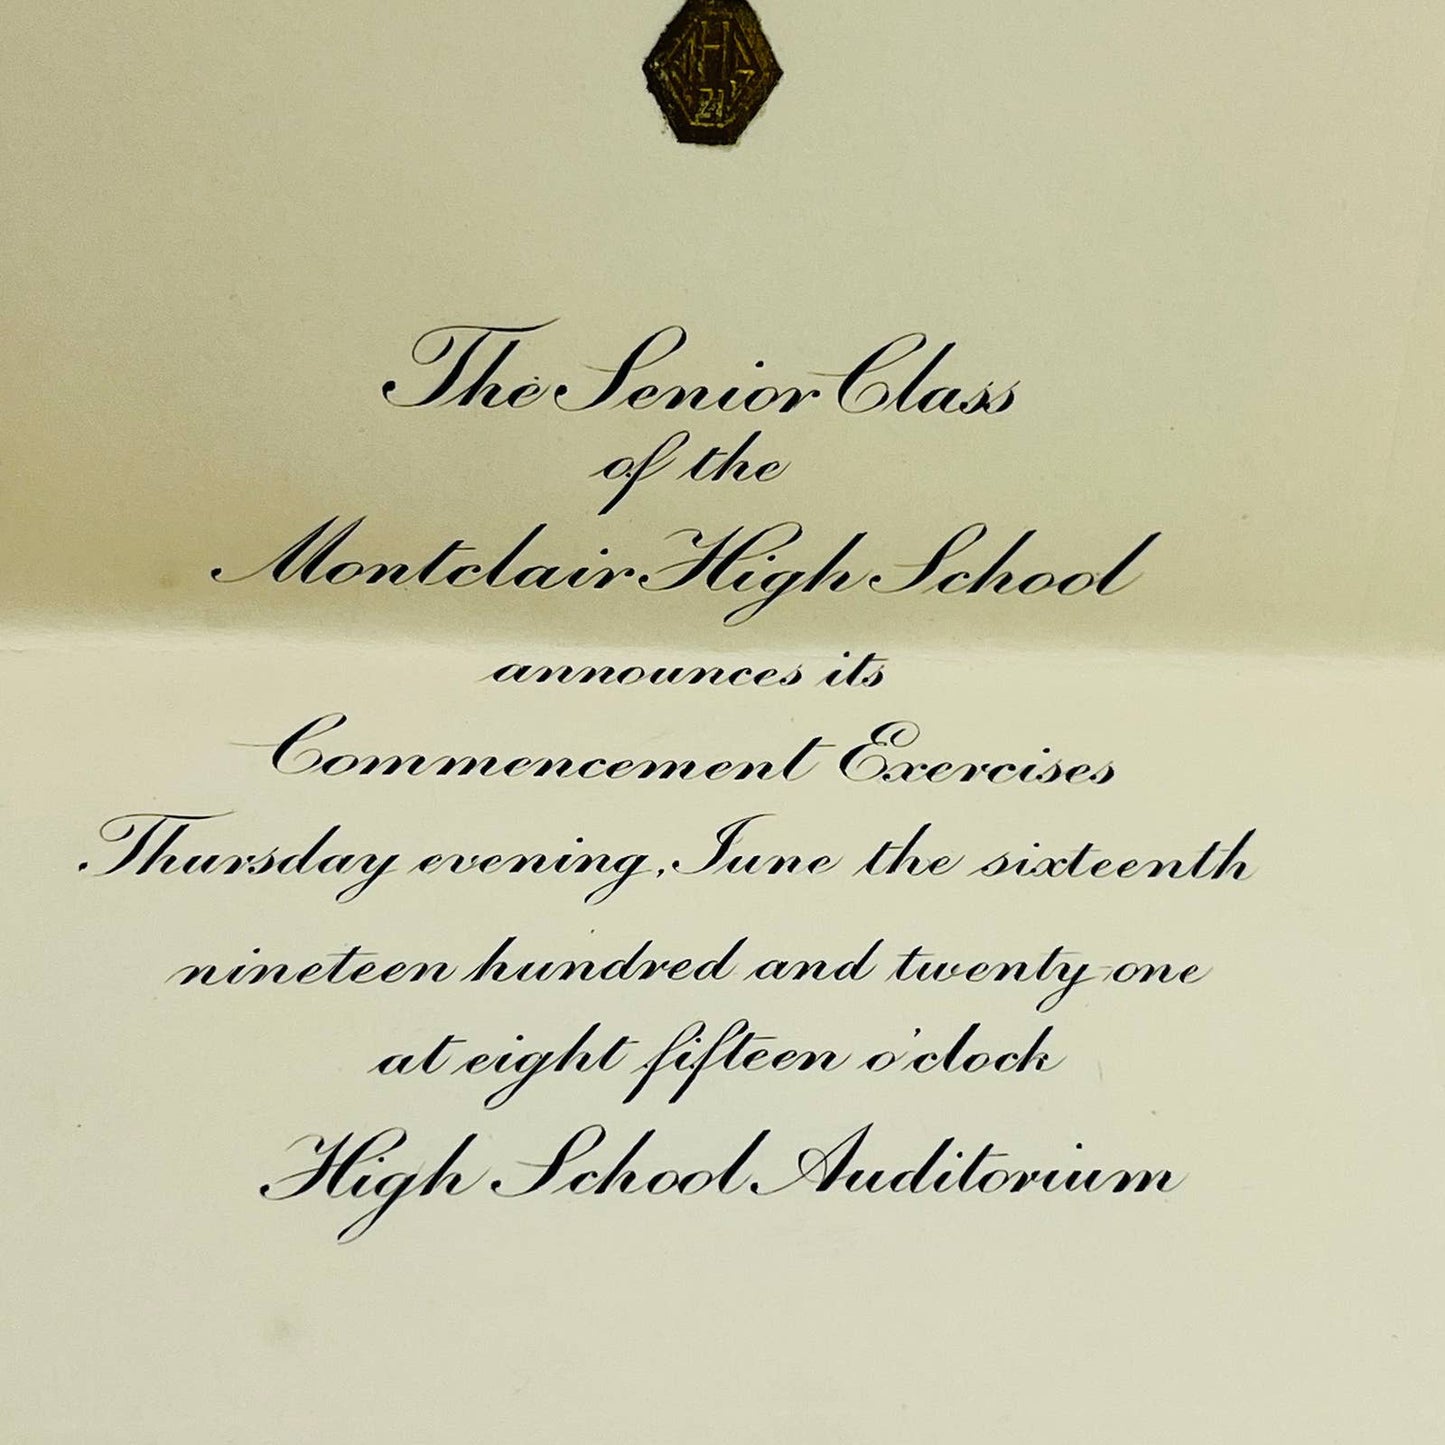 H
21
The Senior Class
of the
Montclair High School
announces its
Commencement Exercises
Thursday evening, June the sixteenth
nineteen hundred and twenty-one
at eight fifteen o'clock
High School Auditorium